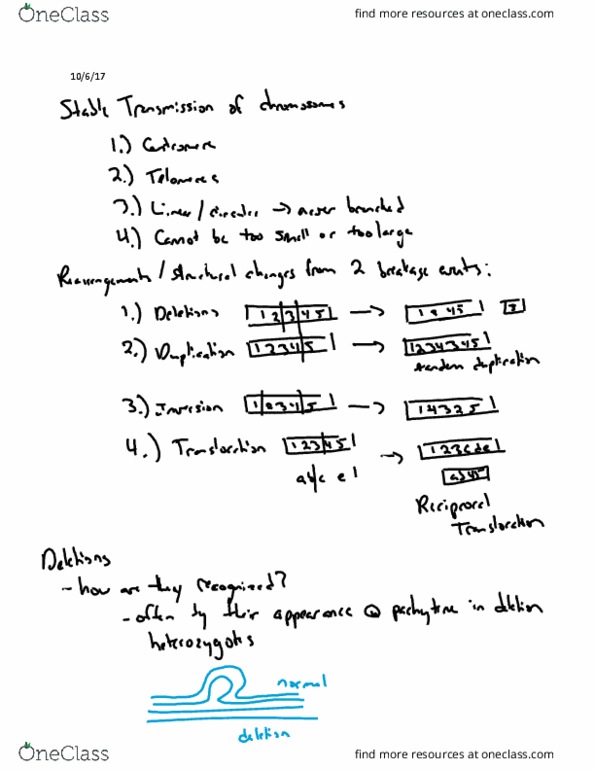 OneClass
find more resources at oneclass.com
10/6/17
Stable Transmission of chromosomes
1.) Centromere
2.) Telomeres
3.) Linear / circular → never branched
4.) Cannot be too small or too large
Rearrangements / structural changes from 2 breakage events:
1.) Deletions 1 2 3 4 5 → 1 2 4 5 3
2.) Duplication 1 2 3 4 5 → 1 2 3 4 3 4 5
tandem duplication
3.) Inversion 1 2 3 4 5 → 1 4 3 2 5
4.) Translocation 1 2 3 4 5 → 1 2 3 c d e
Reciprocal
Translocation
Deletions
- how are they recognized?
- often by their appearance @ pachytene in deletion
heterozygotes
normal
deletion
OneClass
find more resources at oneclass.com